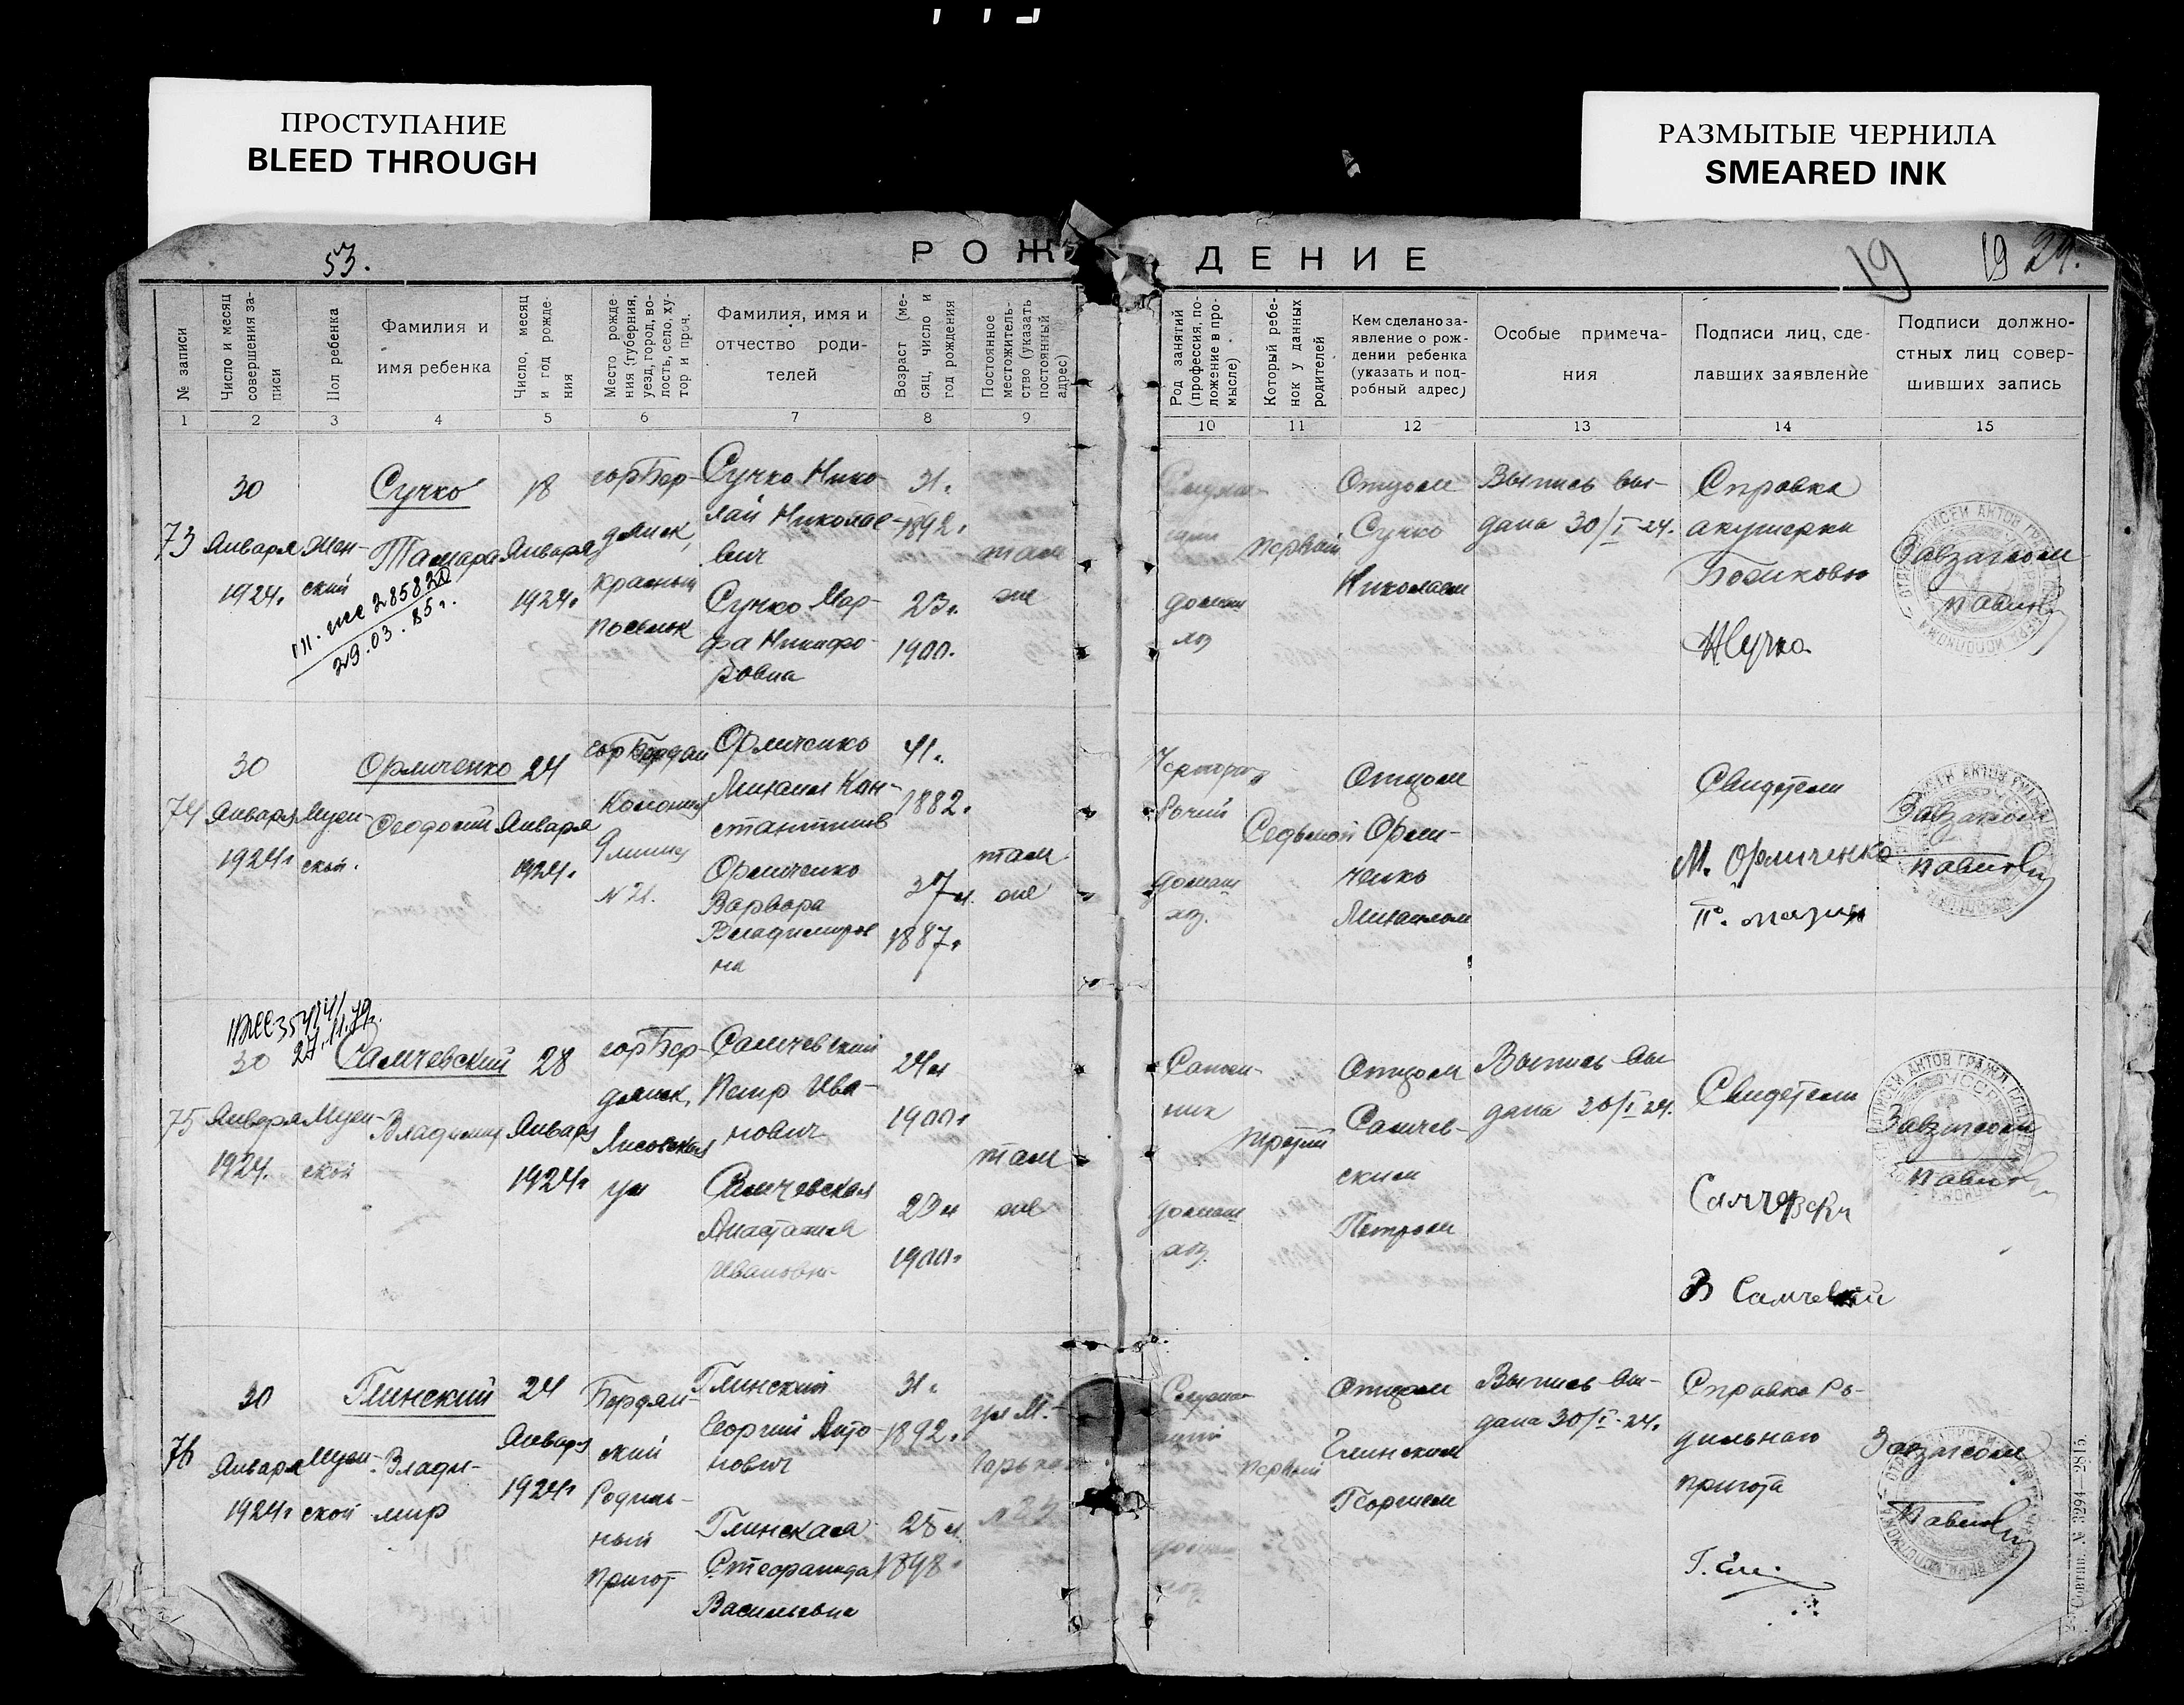 ПРОСТУПАНИЕ
BLEED THROUGH
РАЗМЫТЫЕ ЧЕРНИЛА
SMEARED INK
53.
РОЖДЕНИЕ
19
1924.
№ записи
Число и месяц совершения записи
Пол ребенка
Фамилия и
имя ребенка
Число, месяц и год рождения
Место рождения (губерния, уезд, город, волость, село, хутор и проч.
Фамилия, имя и
отчество роди-
телей
Возраст (месяц, число и год рождения
Постоянное местожительство (указать постоянный адрес)
Род занятий (профессия, положение в промысле)
Который ребенок у данных родителей
Кем сделано за-
явление о рож-
дении ребенка
(указать и под-
робный адрес)
Особые примеча-
ния
Подписи лиц, сде-
лавших заявление
Подписи должно-
стных лиц совер-
шивших запись
1 2 3 4 5 6 7 8 9 10 11 12 13 14 15
73
30
Января
1924г
Жен-
ский
Сучко
Тамара
29.03.85г.
18
Января
1924г
гор Бер-
дянск,
красный
поселок
Сучко Нико-
лай Николае-
вич
Сучко Мар-
фа Никифо-
ровна
31г
1892г
23г
1900г
там
же
домаш
хоз
первый
Отцом
Сучко
Николаем
Выпись вы-
дана 30/I-24г.
Справка
акушерки
Завзагсом
74
30
Января
1924г
Муж-
ской.
Орличенко
Феодосий
24
Января
1924г
Колония
№ 21.
Орличенко
Михаил Кон-
стантинов
Орличенко
Варвара
Владимиров
на
41г
1882г
37л
1887г
там
же
рочий
домаш
хоз.
Седьмой
Отцом
Орли-
ченко
Михаилом
Свидетели
М. Орличенко
Завзагсом
75
30
Января
1924г.
Муж-
ской
27.11.79г.
Самчевский
Владимир
28
Января
1924г
гор Бер-
дянск,
Лисовская
ул
Самчевский
Петр Ива-
нович
Самчевская
Анастасия
Ивановна
24л
1900г
23л
1900г
там
же
Сапож-
ник
домаш
хоз.
третий
Отцом
Самчев-
ским
Петром
Выпись вы-
дана 30/I-24г.
Свидетели
В Самчевский
Завзагсом
76
30
Января
1924г
Муж-
ской
Глинский
Влади-
мир
24
Января
1924г
Бердян-
ский
Родиль-
ный
приют
Глинский
Георгий Анто
нович
Глинская
Стефанида
Васильевна
31г
1892г
25л
1898г
ул М.-
первый
Отцом
Глинским
Георгием
Выпись вы-
дана 30/I-24г.
Справка Ро-
дильнаго
приюта
Завзагсом